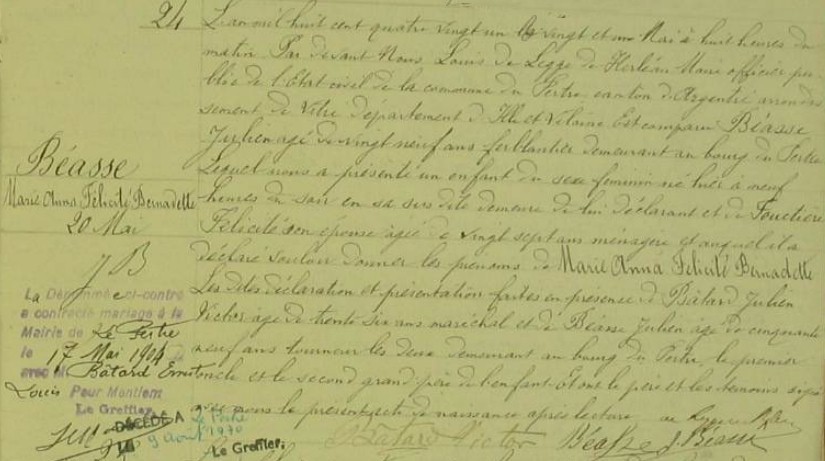 24
Béasse
Marie Anna Félicité Bernadette
20 Mai
J B
La Dénommée ci-contre
a contracté mariage à la
Mairie de Le Pertre
le 17 Mai 1904
avec M Bâtard Ernest
Louis Pour Mention
Le Greffier,
DÉCÉDÉ A Le Pertre
LE 9 août 1970
Le Greffier,
L'an mil huit cent quatre vingt un le vingt et un Mai à huit heures du
matin Par devant Nous Louis de Legge de Herléan Maire officier pu-
blic de l'Etat civil de la commune du Pertre canton d'Argentré arrondis
sement de Vitré département d'Ille et Vilaine Est comparu Béasse
Julien agé de vingt neuf ans ferblantier demeurant au bourg du Pertre
Lequel nous a présenté un enfant du sexe féminin né hier à neuf
heures du soir en sa sus dite demeure de lui déclarant et de Fouctière
Félicité son épouse agée de vingt sept ans ménagère et auquel il a
déclaré vouloir donner les prénoms de Marie Anna Félicité Bernadette
Les dites déclaration et présentation faites en présence de Bâtard Julien
Victor agé de trente six ans maréchal et de Béasse Julien âgé de cinquante
neuf ans tourneur les deux demeurant au bourg du Pertre, le premier
oncle et le second grand père de l'enfant. Et ont le père et les témoins signé
avec nous le présent acte de naissance après lecture
Bâtard Victor Béasse J. Béasse